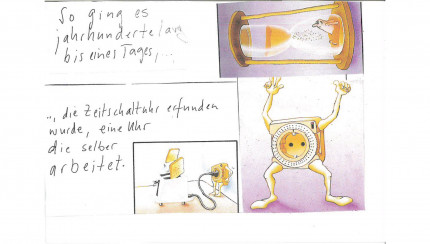 So ging es
jahrhundertelang
bis eines Tages,...
..., die Zeitschaltuhr erfunden
wurde, eine Uhr
die selber
arbeitet.